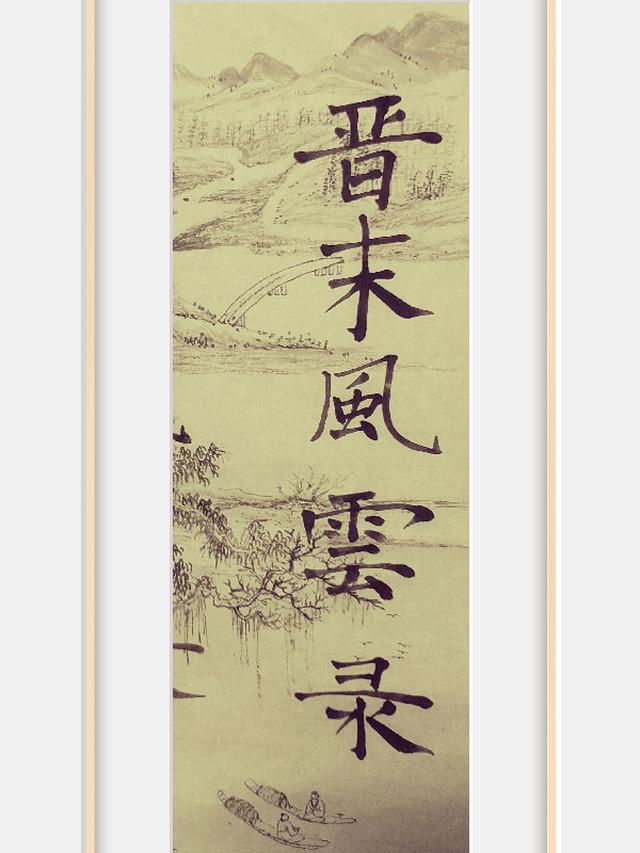 晋末風雲录